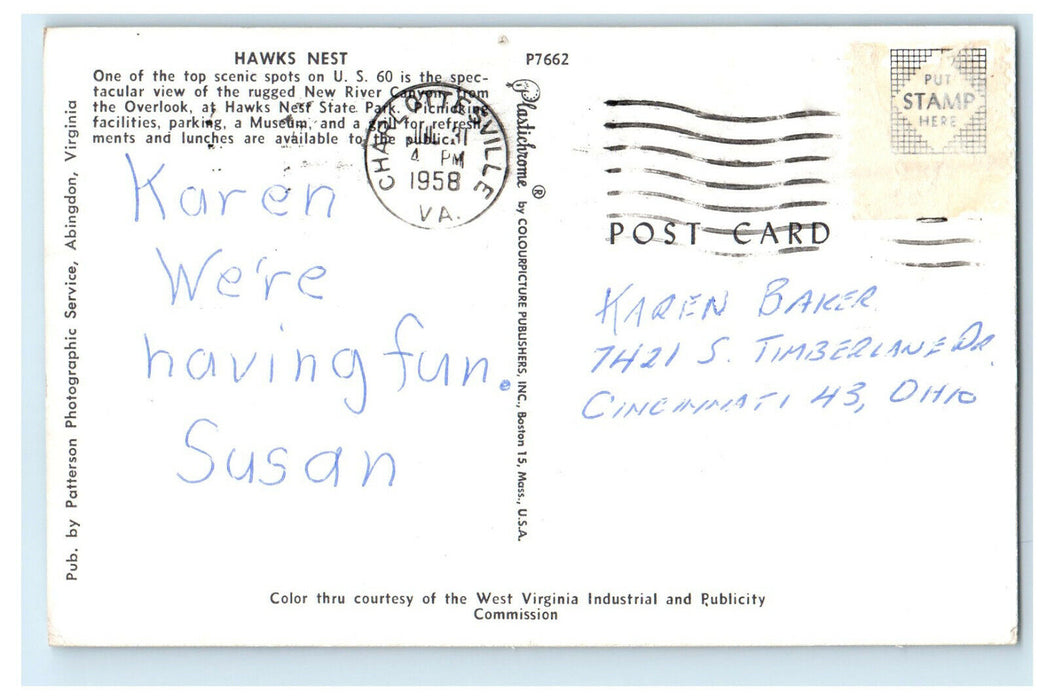 HAWKS NEST
One of the top scenic spots on U. S. 60 is the spec-
tacular view of the rugged New River Canyon from
the Overlook, at Hawks Nest State Park. Picnicking
facilities, parking, a Museum, and a grill for refresh-
ments and lunches are available to the public.
P7662
CHARLOTTESVILLE
4 PM
1958
VA.
PUT
STAMP
HERE
POST CARD
Karen
We're
having fun.
Susan
KAREN BAKER
7421 S. TIMBERLANE DR.
CINCINNATI 43, OHIO
Pub. by Patterson Photographic Service, Abingdon, Virginia
Plastichrome ® by COLOURPICTURE PUBLISHERS, INC., Boston 15, Mass., U.S.A.
Color thru courtesy of the West Virginia Industrial and Publicity
Commission